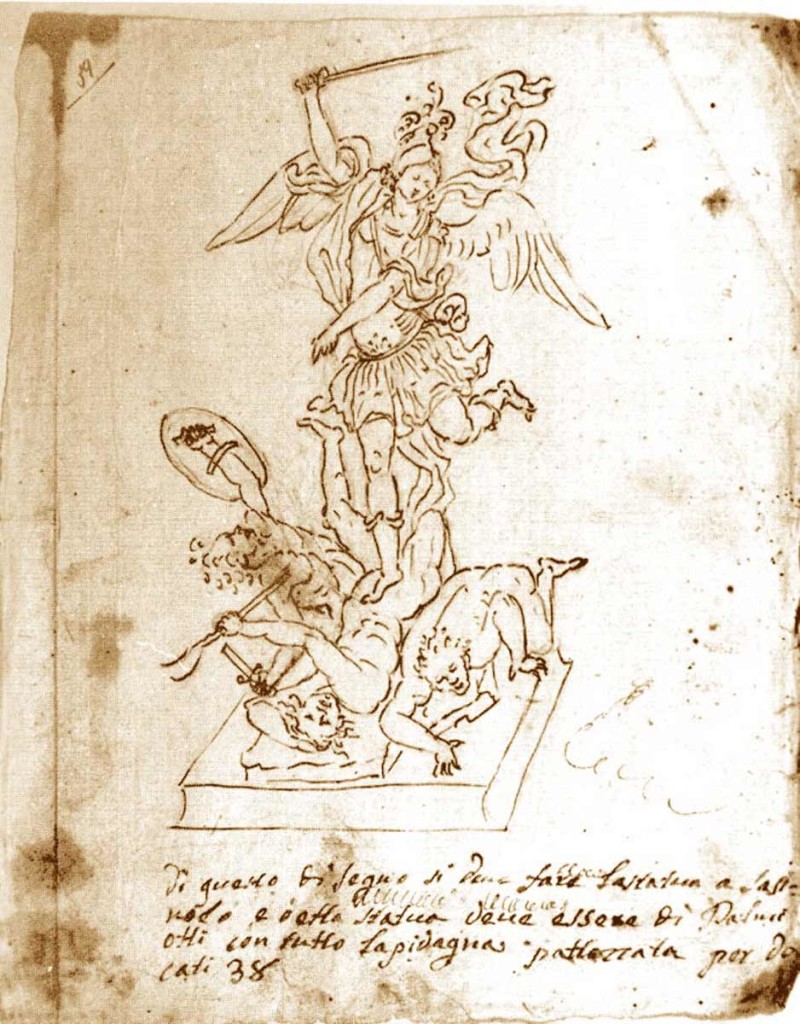 59
Di questo disegno si deve fare la statua a
e detta statua deve essere di Palmi
otti con tutto la pidagna pattezzata per do
cati 38